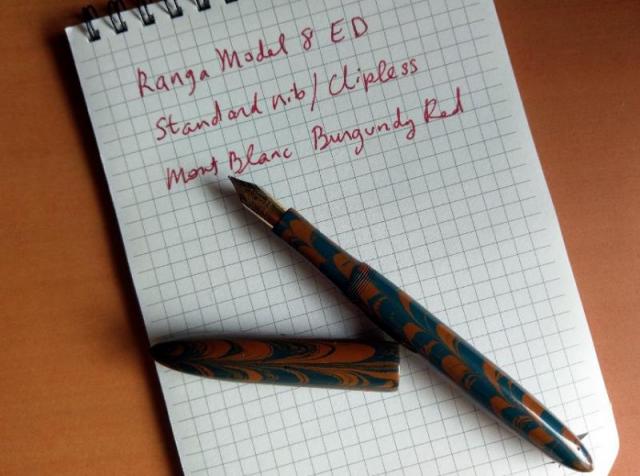 Ranga Model 8 ED
Standard nib/Clipless
Mont Blanc Burgundy Red